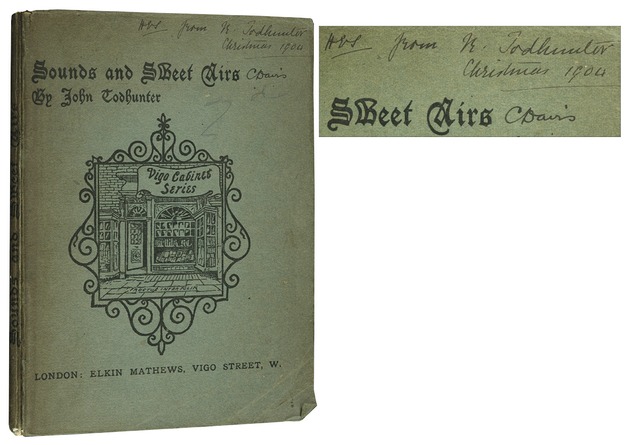 from K. Todhunter
Christmas 1904
Sounds and Sweet Airs C Davis
By John Todhunter
Vigo Cabinet
Series
LONDON: ELKIN MATHEWS, VIGO STREET, W.
from K. Todhunter
Christmas 1904
Sweet Airs C Davis